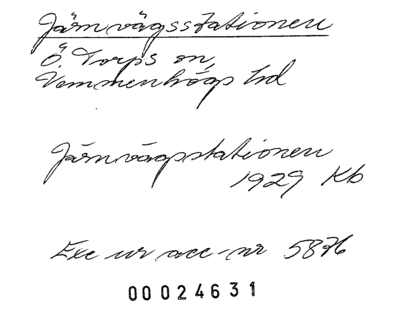 Järnvägsstationen
Ö. Torps sn,
Vemmenhögs hd
Järnvägsstationen
1929 Kb
Exc ur acc-nr 5876
00024631